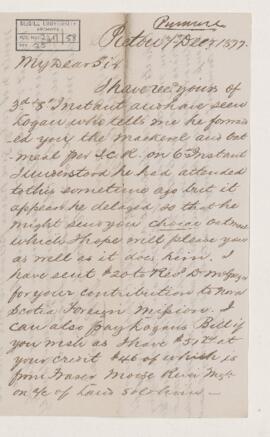 McGILL UNIVERSITY
ARCHIVES
ACC. NO. 58
REF. 25
Pictou Dec 1877.
My Dear Sir
I have rec'd yours of
3d & 8th Instant and have seen
Logan who tells me he forward
ed you the Mackerel and oat
meal per I.C.R. on 6th Instant
I understood he had attended
to this some time ago but it
appears he delayed so that he
might send you choice oatmeal
which I hope will please you
as well as it does him. I
have sent $20 to Revd
for your contribution to Nova
Scotia Foreign Mission. I
can also pay Logans Bill if
you wish as I have $ at
your credit $46 of which is
from Fraser
on a/c of Land sold him —